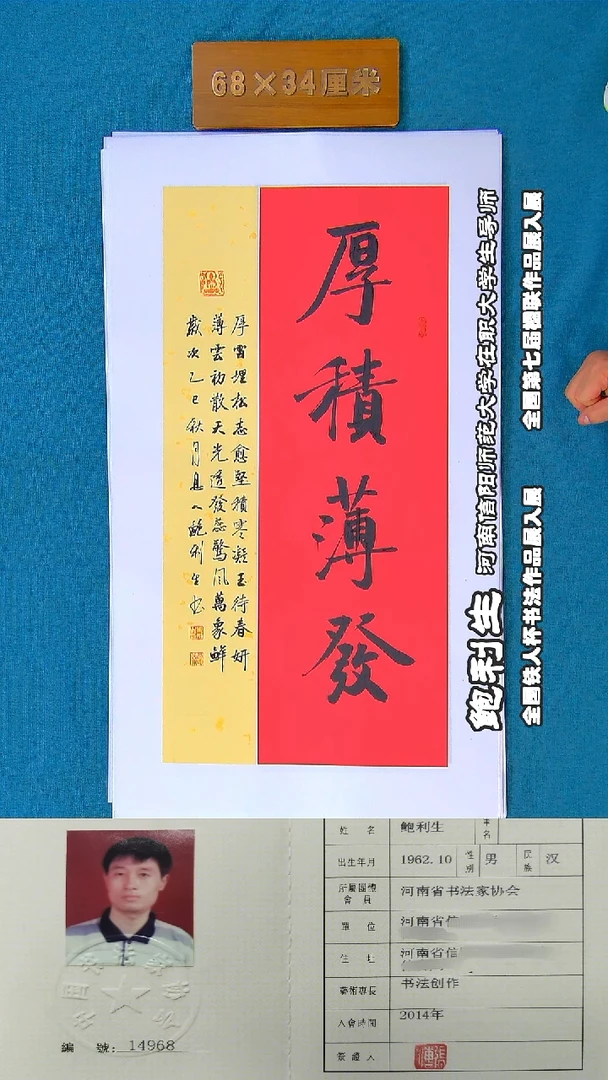 68×34厘米
厚積薄發
厚雪埋松志愈堅積寒凝玉待春妍
薄雲初散天光透發蕊驚風萬象鮮
歲次乙巳秋月息人鮑利生书
鲍利生
河南信阳师范大学在职大学生导师
全国第七届楹联作品展入展
全国铁人杯书法作品展入展
姓 名 鲍利生
名
出生年月 1962.10 性别 男 民族 汉
所屬團體會員 河南省书法家协会
單 位 河南省信
住 址 河南省信
藝術專長 书法创作
入會時間 2014年
簽證人
编 號: 14968